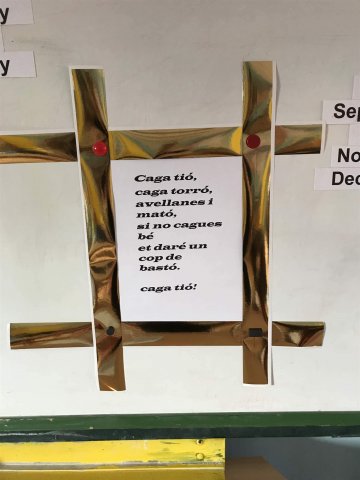 y
y
Sep
No
Dec
Caga tió,
caga torró,
avellanes i
mató,
si no cagues
bé
et daré un
cop de
bastó.
caga tió!